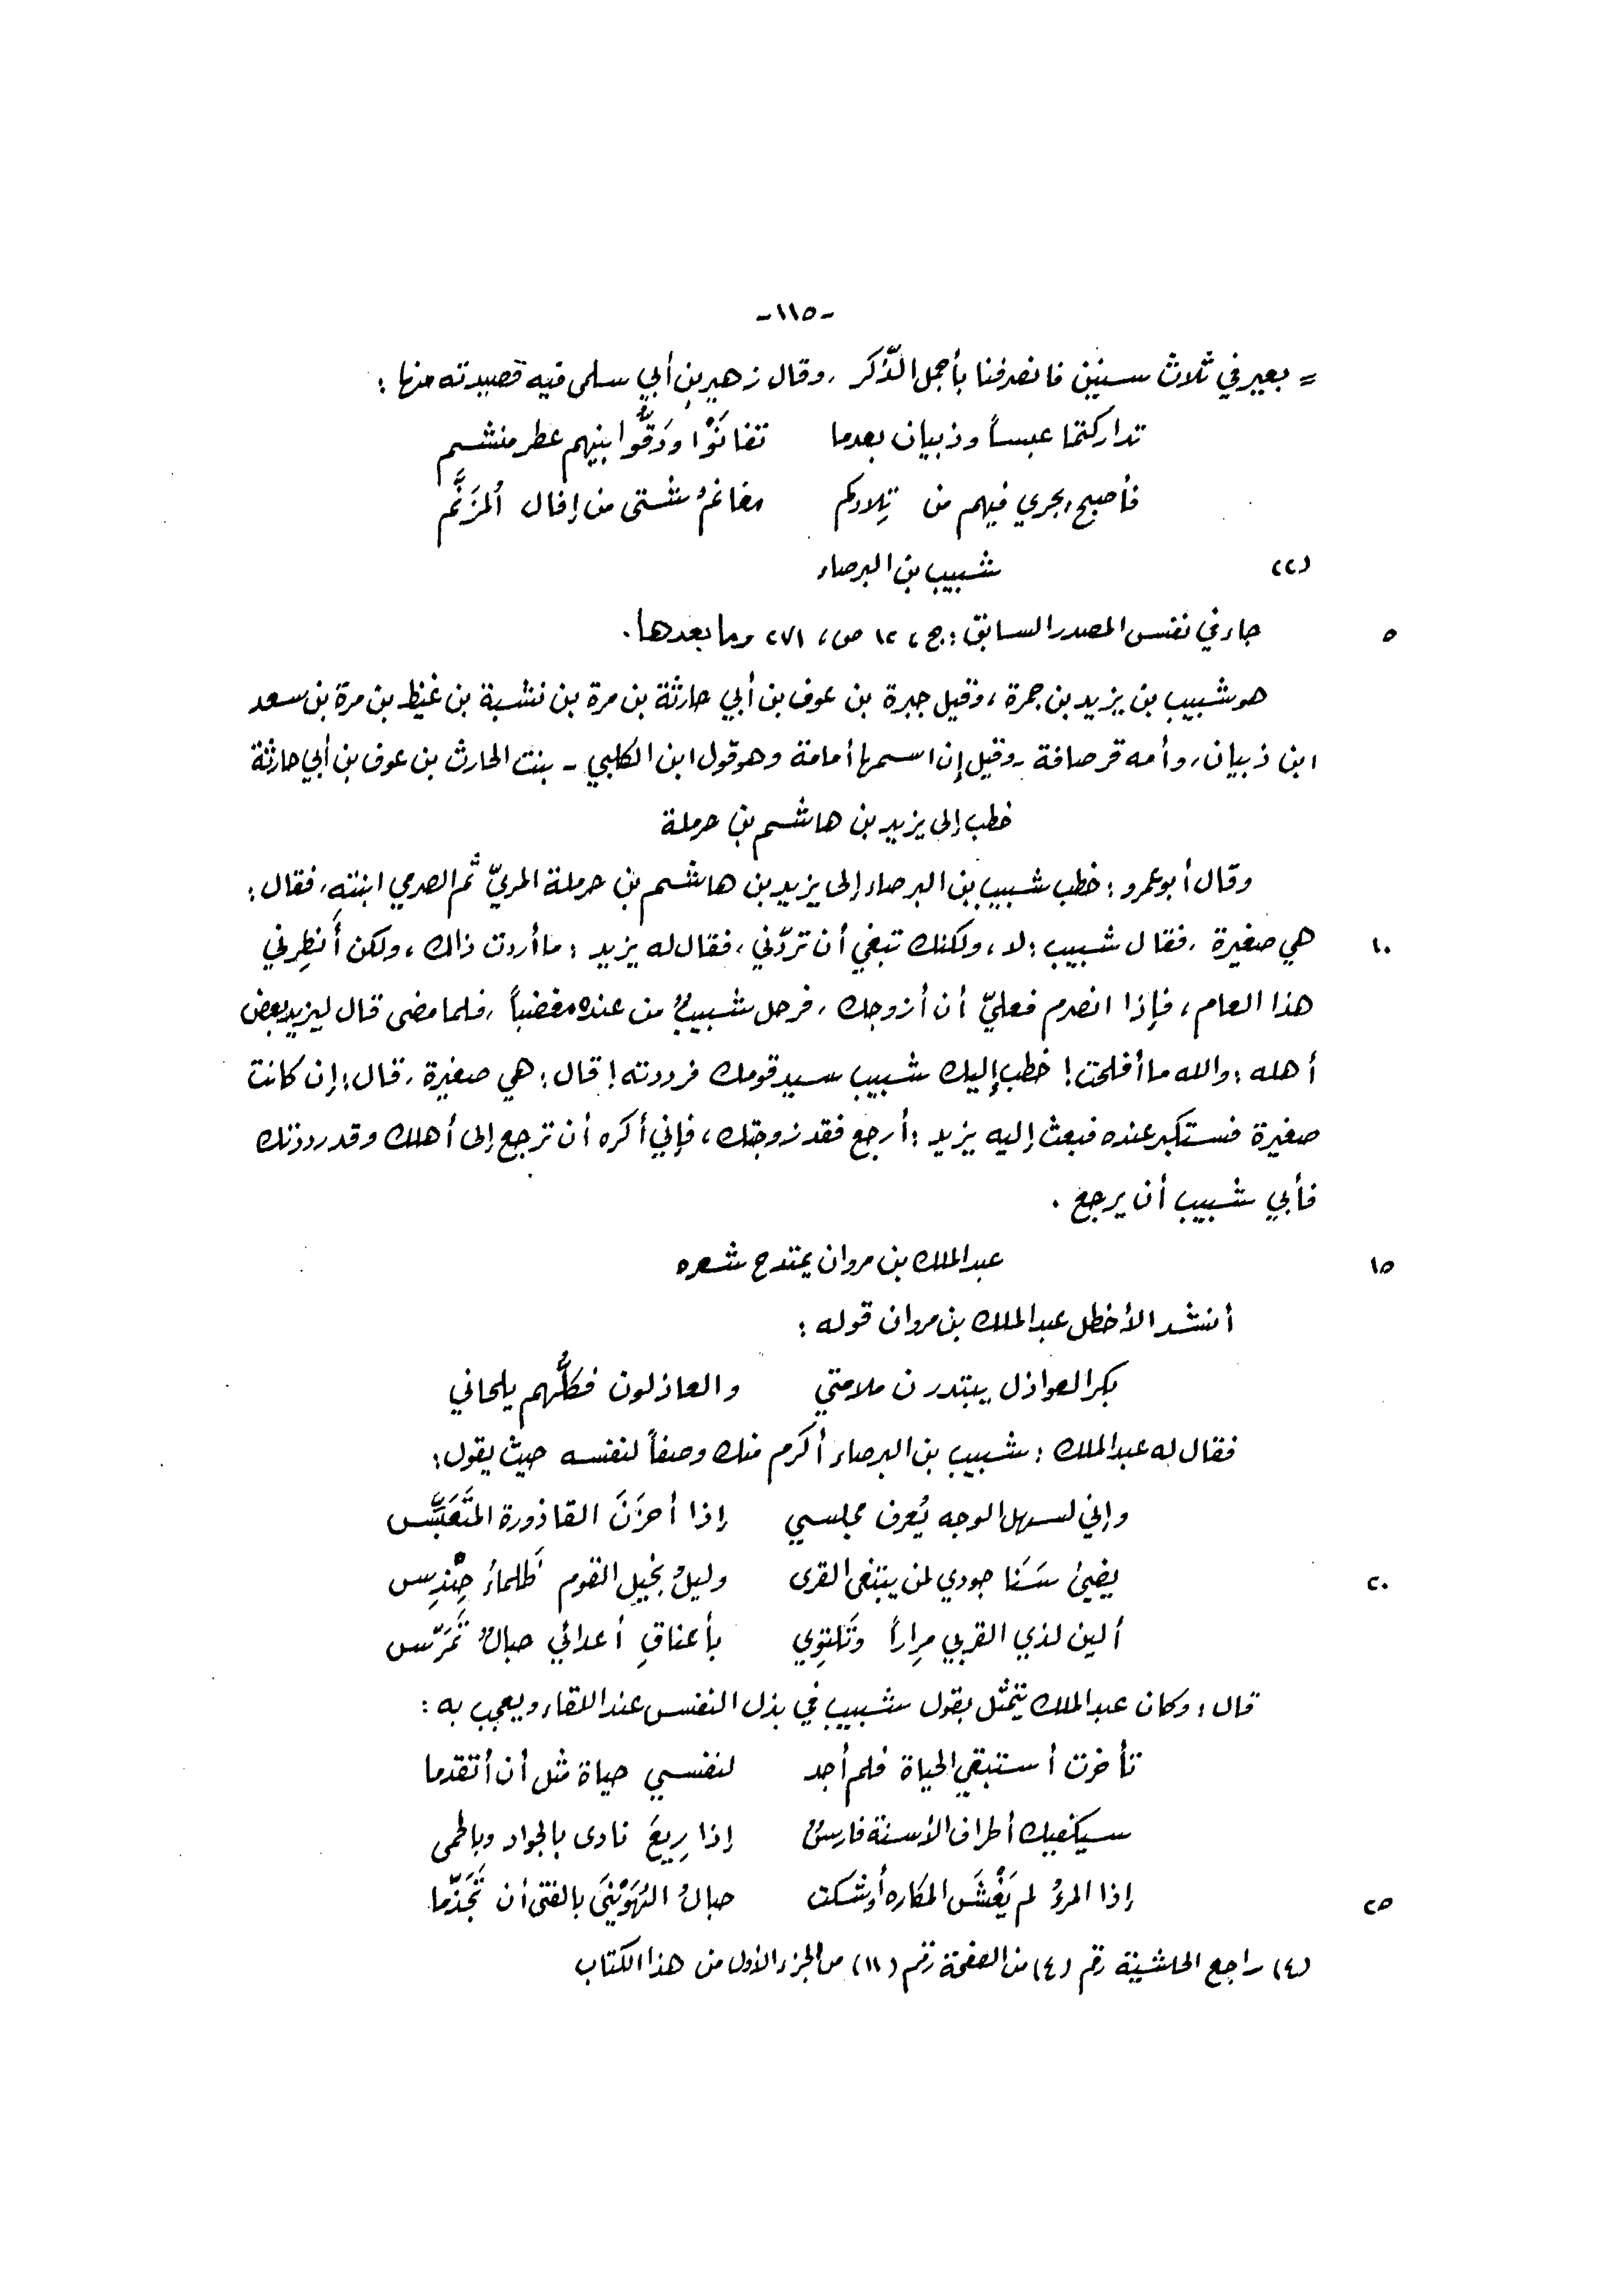 -١١٥-
= بعير في ثلاث سنين فانصرفنا بأجمل الذّكر، وقال زهير بن أبي سلمى فيه قصيدته منها:
تداركتما عبساً وذبيان بعدما تفانَوْا ودَقُّوا بينهم عطر منشم
فأصبح يجري فيهم من تِلادكم مغانمُ شتى من إفال المُزَنَّم
(٢٢) شبيب بن البرصاء
٥ جاء في نفس المصدر السابق: ج، ١٢ ص، ٢٧١ وما بعدها.
هو شبيب بن يزيد بن جمرة، وقيل جبرة بن عوف بن أبي حارثة بن مرة بن نشبة بن غيظ بن مرة بن سعد
ابن ذبيان، وأمه قرصافة - وقيل إن اسمها أمامة وهو قول ابن الكلبي - بنت الحارث بن عوف بن أبي حارثة
خطب إلى يزيد بن هاشم بن حرملة
وقال أبو عمرو: خطب شبيب بن البرصاء إلى يزيد بن هاشم بن حرملة المريّ ثم الصرمي ابنته، فقال:
١٠ هي صغيرة، فقال شبيب: لا، ولكنك تبغي أن تردّني، فقال له يزيد: ما أردت ذاك، ولكن أَنظِرني
هذا العام، فإذا انصرم فعليّ أن أزوجك، فرحل شبيبٌ من عنده مغضباً، فلما مضى قال ليزيد بعض
أهله: والله ما أفلحت! خطب إليك شبيب سيد قومك فرددته! قال: هي صغيرة، قال: إن كانت
صغيرة فستكبر عنده فبعث إليه يزيد: أرجع فقد زوجتك، فإني أكره أن ترجع إلى أهلك وقد رددتك
فأبى شبيب أن يرجع.
١٥ عبد الملك بن مروان يمتدح شعره
أنشد الأخطل عبد الملك بن مروان قوله:
بكر العواذل يبتدرن ملامتي والعاذلون فكلُّهم يلحاني
فقال له عبد الملك: شبيب بن البرصاء أكرم منك وصفاً لنفسه حيث يقول:
وإني لسهل الوجه يُعرف مجلسي إذا أحزَنَ القاذورة المتَعَبِّس
٢٠ يضيئ سَنَا جودي لمن يبتغي القرى وليلُ بخيل القوم ظَلماءُ حِنْدِس
ألين لذي القربى مِراراً وتَلتوِي بأعناقِ أعدائي حبالٌ تَمَرّس
قال: وكان عبد الملك يتمثل بقول شبيب في بذل النفس عند اللقاء ويعجب به:
تأخرت أستبقي الحياة فلم أجد لنفسي حياة مثل أن أتقدما
سيكفيك أطراف الأسنة فارسٌ إذا رِيعَ نادى بالجواد وبالحمى
٢٥ إذا المرءُ لم يَغْشَ المكاره أوشكت حبالُ الهُوَيْنَى بالفتى أن تَجَذّما
(٤) راجع الحاشية رقم (٤) من الصفحة رقم (١١) من الجزء الأول من هذا الكتاب